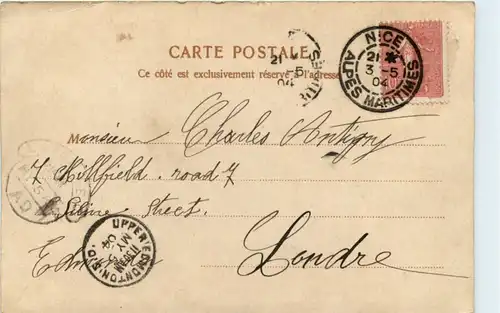 CARTE POSTALE
Ce côté est exclusivement réservé à l'adresse
NICE
21 *
3 -5
04
ALPES MARITIMES
21
5
04
Monsieur Charles Antigny
7 Hillfield road 7
Silver Street.
Londre
UPPER EDMONTON S.O.
MY 5
04